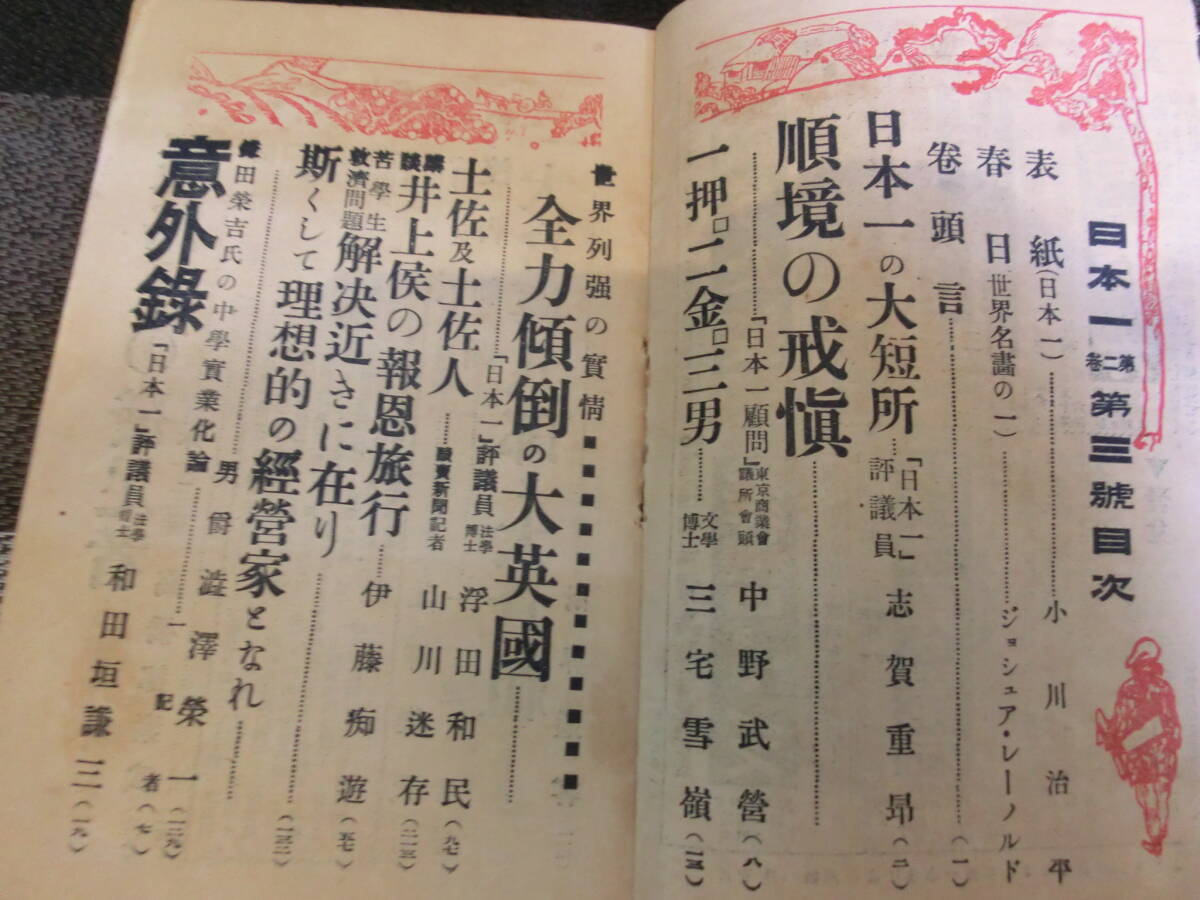 日本一 第二卷 第三號目次
表紙(日本一)……小川治平
春日 世界名畫の一)……ジョシュア・レーノルド
卷頭言……(一)
日本一の大短所……「日本一」評議員 志賀重昂(二)
順境の戒愼……
……「日本一顧問」東京商業會議所會頭 中野武營(八)
一押□二金□三男……文學博士 三宅雪嶺(一三)
世界列强の實情
全力傾倒の大英國……
……「日本一」評議員 法學博士 浮田和民(九七)
土佐及土佐人……讀賣新聞記者 山川迷存(二一三)
講談 井上侯の報恩旅行……伊藤痴遊(五七)
苦學生救濟問題 解決近きに在り……(一三二)
斯くして理想的の經營家となれ……
……男爵 澁澤榮一(一二九)
鎌田榮吉氏の中學實業化論……一記者(七)
意外錄「日本一」評議員 法學博士 和田垣謙三(一九)